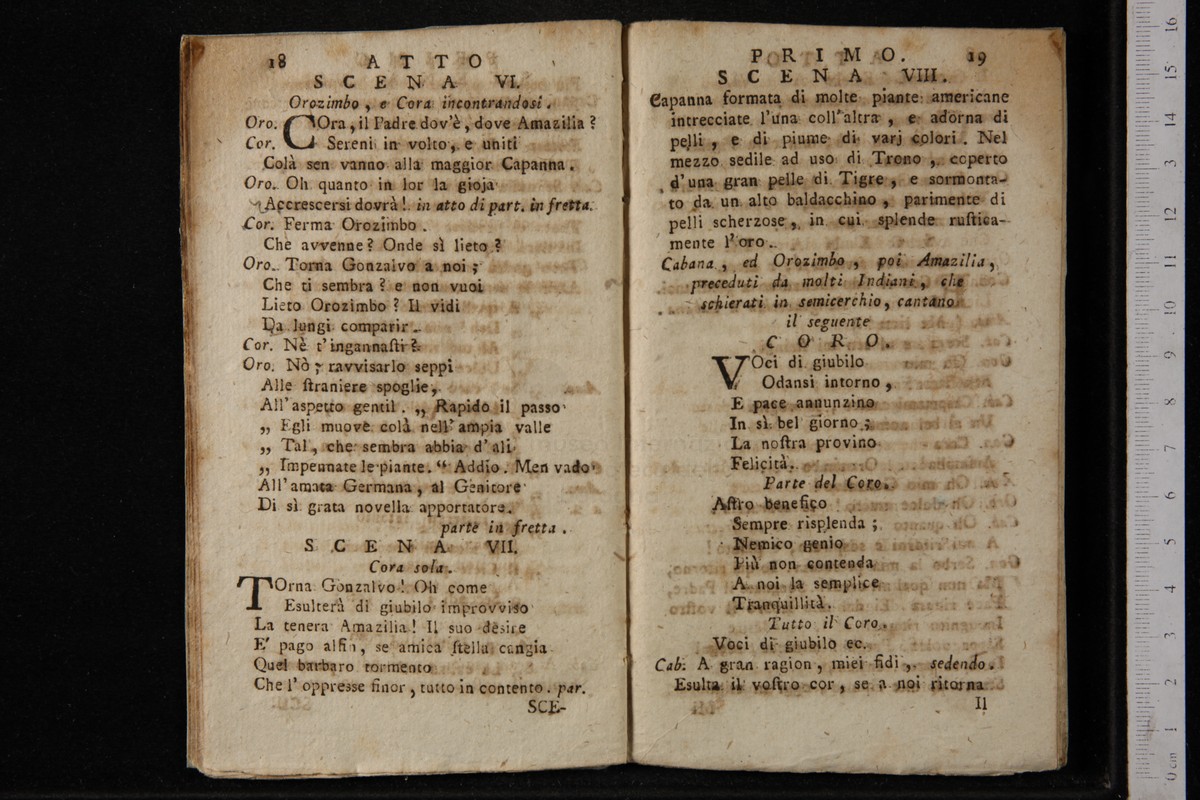 18 ATTO
SCENA VI.
Orozimbo, e Cora incontrandosi.
Oro. COra, il Padre dov'è, dove Amazilia?
Cor. Sereni in volto, e uniti
Colà sen vanno alla maggior Capanna.
Oro. Oh quanto in lor la gioja
Accrescersi dovrà! in atto di part. in fretta.
Cor. Ferma Orozimbo.
Chè avvenne? Onde sì lieto?
Oro. Torna Gonzalvo a noi;
Che ti sembra? e non vuoi
Lieto Orozimbo? Il vidi
Da lungi comparir.
Cor. Nè t'ingannaſti?
Oro. Nò; ravvisarlo seppi
Alle ſtraniere spoglie,
All'aspetto gentil. „ Rapido il passo
„ Egli muove colà nell'ampia valle
„ Tal, che sembra abbia d'ali
„ Impennate le piante. “ Addio. Men vado
All'amata Germana, al Genitore
Di sì grata novella apportatore.
parte in fretta.
SCENA VII.
Cora sola.
TOrna Gonzalvo! Oh come
Esulterà di giubilo improvviso
La tenera Amazilia! Il suo desire
E' pago alfin, se amica ſtella cangia
Quel barbaro tormento
Che l'oppresse finor, tutto in contento. par.
SCE-
PRIMO. 19
SCENA VIII.
Capanna formata di molte piante americane
intrecciate l'una coll'altra, e adorna di
pelli, e di piume di varj colori. Nel
mezzo sedile ad uso di Trono, coperto
d'una gran pelle di Tigre, e sormonta-
to da un alto baldacchino, parimente di
pelli scherzose, in cui splende ruſtica-
mente l'oro.
Cabana, ed Orozimbo, poi Amazilia,
preceduti da molti Indiani, che
schierati in semicerchio, cantano
il seguente
CORO.
VOci di giubilo
Odansi intorno,
E pace annunzino
In sì bel giorno;
La noſtra provino
Felicità.
Parte del Coro.
Aſtro benefico
Sempre risplenda;
Nemico genio
Più non contenda
A noi la semplice
Tranquillità.
Tutto il Coro.
Voci di giubilo ec.
Cab. A gran ragion, miei fidi, sedendo.
Esulta il voſtro cor, se a noi ritorna
Il
0 cm 1 2 3 4 5 6 7 8 9 10 11 12 13 14 15 16